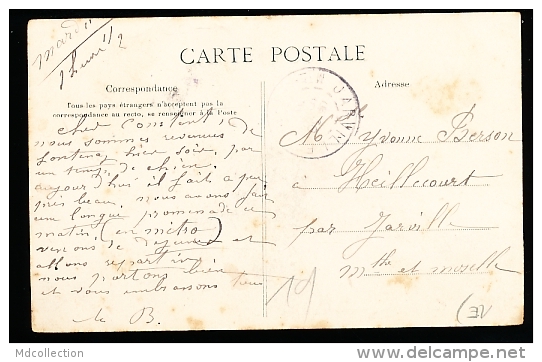 mardi
1 heure 1/2
CARTE POSTALE
Correspondance
Tous les pays étrangers n'acceptent pas la
correspondance au recto, se renseigner à la Poste
Adresse
Cher
nous sommes revenus de
Fontenay hier soir, par
un temps de chien
aujourd'hui il fait à peu
près beau, nous avons fait
une longue promenade ce
matin, (en métro)
venons de déjeuner et
allons repartir,
nous portons bien
et vous embrassons tous
B.
M Yvonne Berson
à Heillecourt
par Jarville
Mthe et moselle
Mdcollection
http://www.delcampe.net